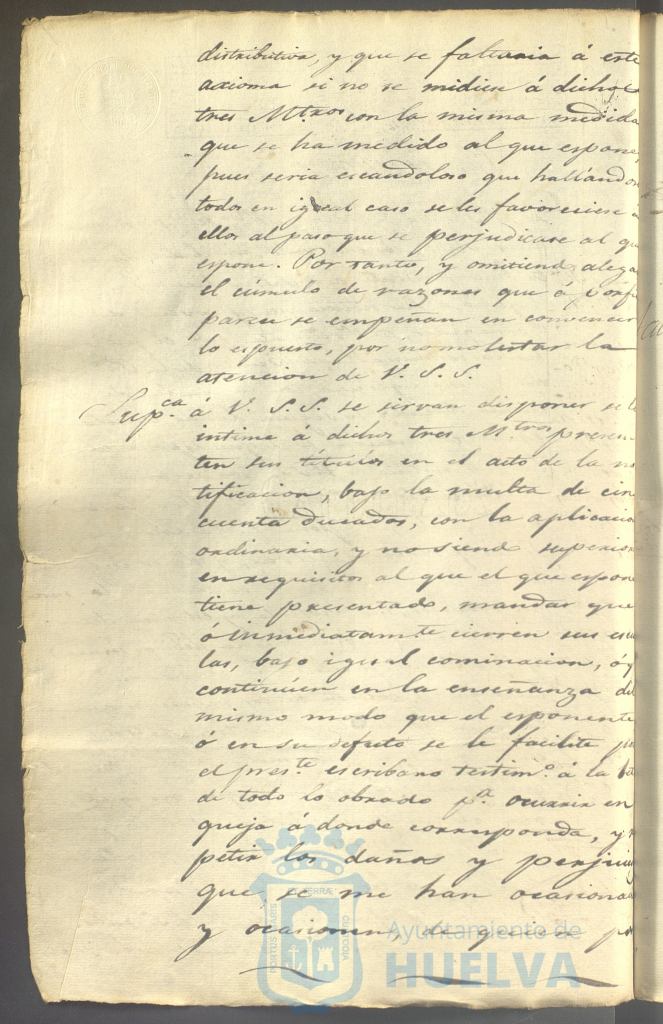 distributiva, y que se faltaria á este
axioma si no se midiese á dichos
tres Mtros con la misma medida
que se ha medido al que espone,
pues seria escandoloso que hallandos
todos en igual caso se les favoreciese á
ellos al paso que se perjudicase al qu
espone. Por tanto, y omitiendo alega
el cúmulo de razones que á porfi
parece se empeñan en convencer
lo espuesto, por no molestar la
atencion de V. S. S.
Supca. á V. S. S. se sirvan disponer se
intime á dichos tres Mtros presen-
ten sus titulos en el acto de la no
tificacion, bajo la multa de cin
cuenta ducados, con la aplicacio
ordinaria, y no siendo superior
en requisitos al que el que espone
tiene presentado, mandar que
ó inmediatamte cierren sus escu
las, bajo igual cominacion, ó q
continúen en la enseñanza del
mismo modo que el esponente
ó en su defecto se le facilite por
el preste. escribano testimo. á la
de todo lo obrado pa. ocurrir en
queja á donde corresponda, y r
petir los daños y perjuic
que se me han ocasiona
y ocasionen, de quien
PORTUS MARIS ET TERRAE CUSTODIA
Ayuntamiento de
HUELVA